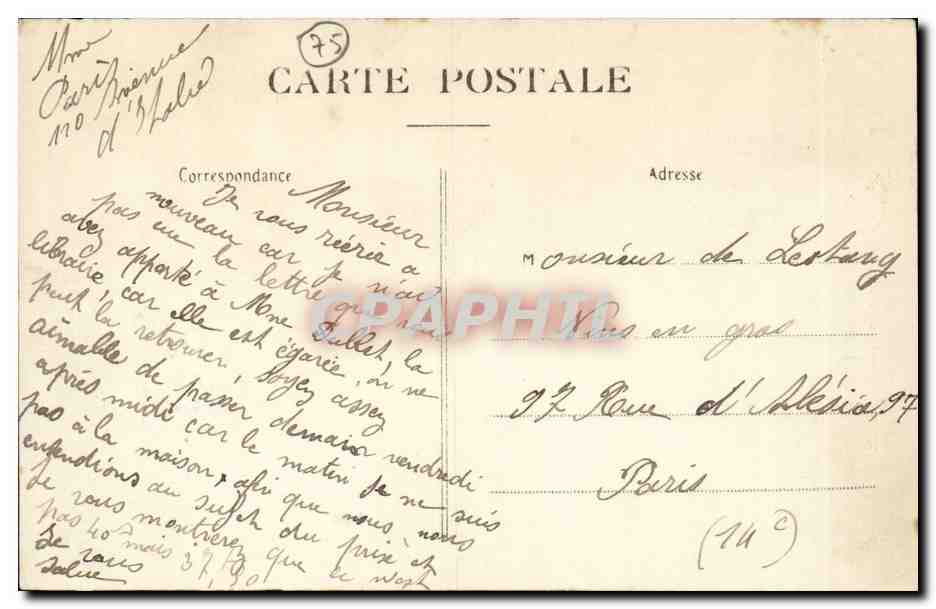 Mme
Paris
110 Avenue
d'Italie
75
CARTE POSTALE
Correspondance
Adresse
Monsieur
Je vous réécris a
nouveau car je n'ai
pas eu la lettre que vous
avez apporté à Mme Dublet, la
libraire car elle est égarée, on ne
peut la retrouver, soyez assez
aimable de passer demain vendredi
après midi car le matin je ne suis
pas à la maison, afin que nous nous
entendions au sujet du prix et
Je vous montrerez que ce n'est
pas 40 mais 37,50
Je vous
salue
Monsieur de Lestang
Vins en gros
97 Rue d'Alésia, 97
Paris
(14e)
CPAPHIL